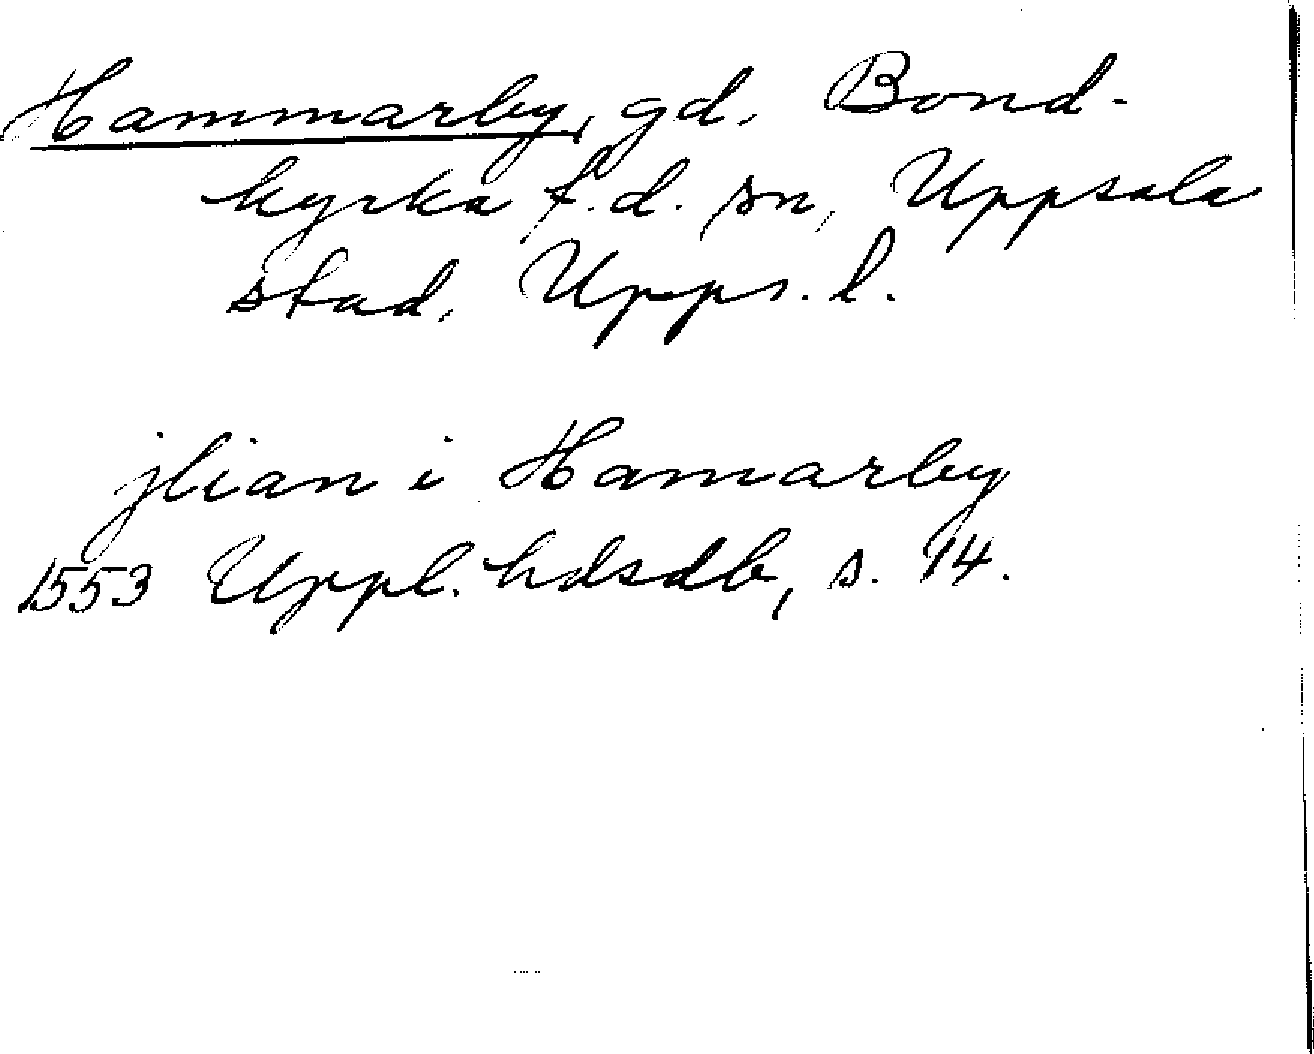 Hammarby, gd. Bond-
kyrka f.d. sn, Uppsala
stad, Upps. l.
jlian i Hamarby
1553 Uppl. hdsdb, s. 14.